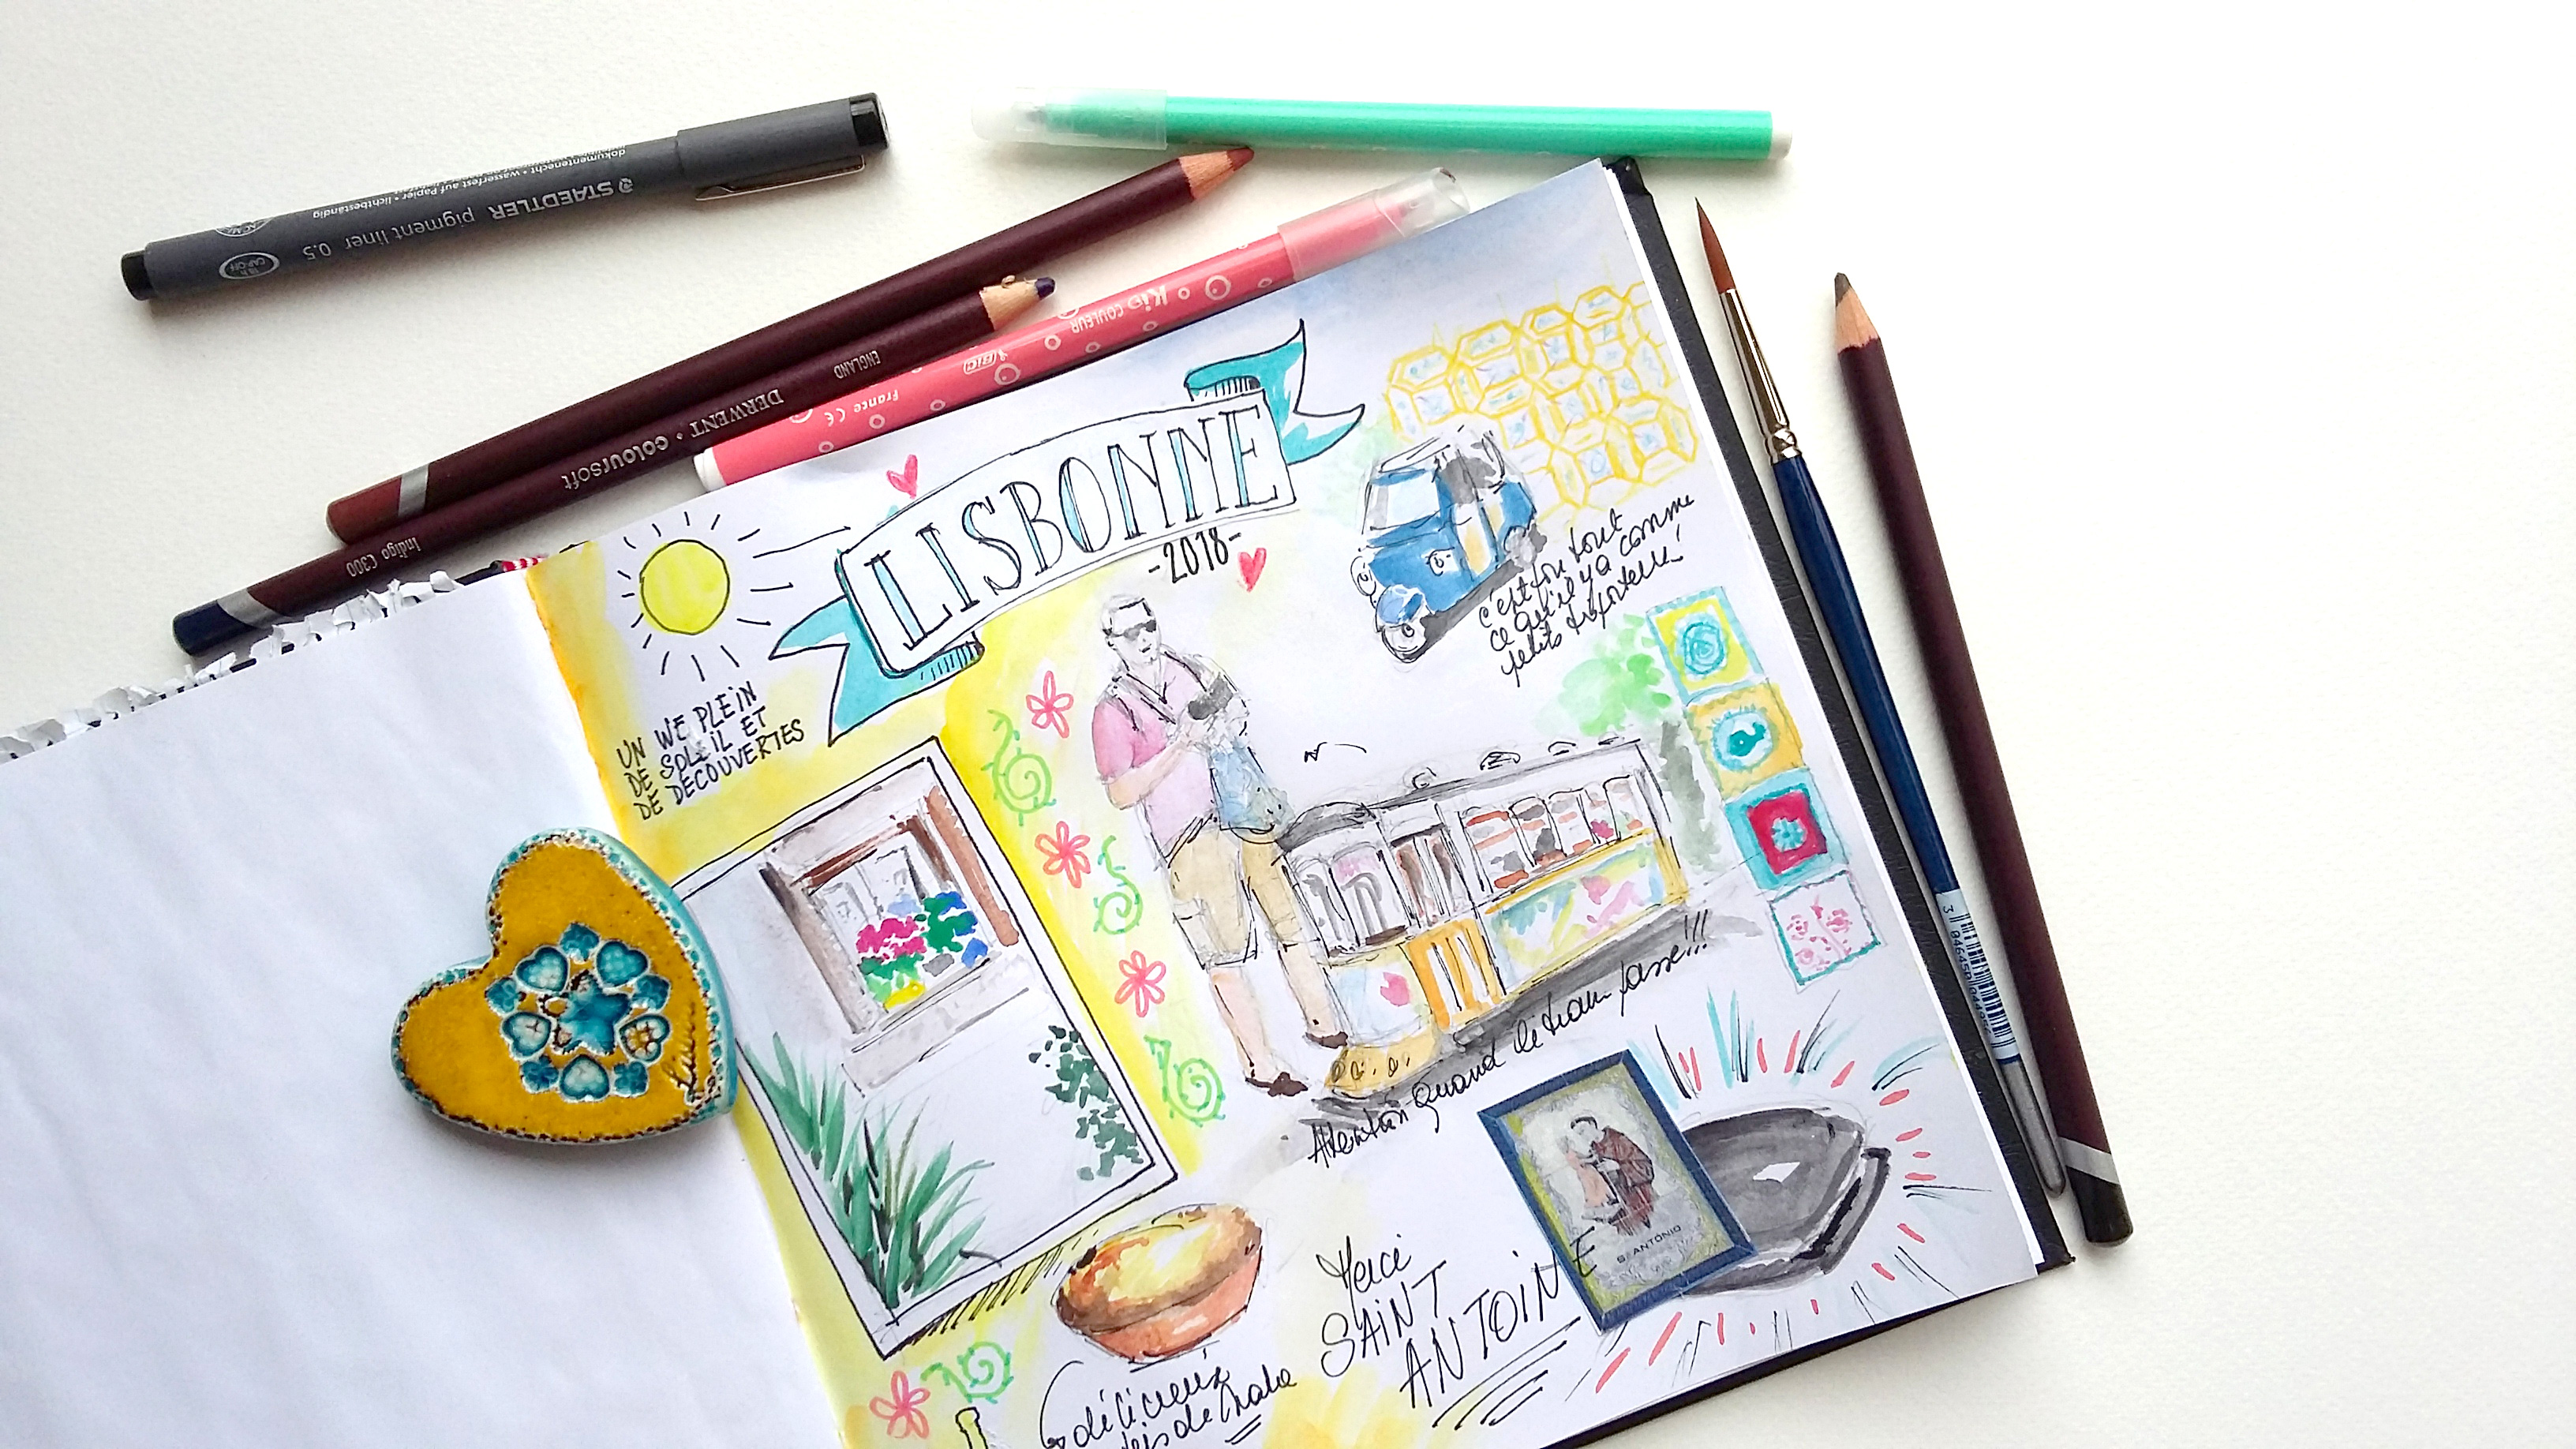 STAEDTLER pigment liner 0.5
dokumentenecht • wasserfest auf Papier • lichtbeständig
18 h
CAP-OFF
DERWENT • COLOURSOFT
ENGLAND
Indigo C300
KiD
COULEUR
BIC
France CE
LISBONNE
-2018-
UN WE PLEIN
DE SOLEIL ET
DE DECOUVERTES
c'est fou tout
ce qu'il y a comme
petits
Attention quand le tram passe!!!
Merci
SAINT
ANTOINE
S. ANTONIO
délicieux
de nata
3